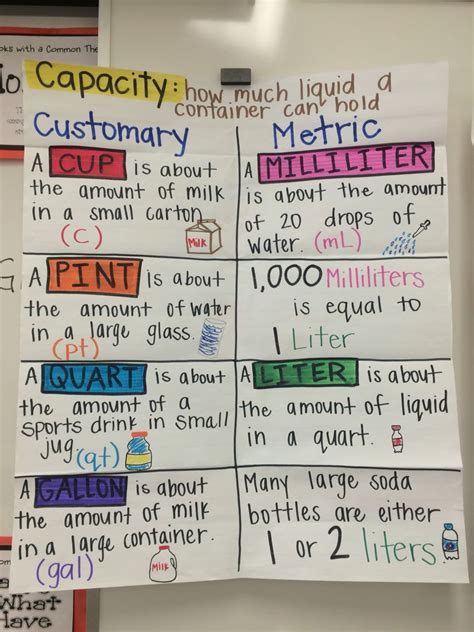 oks with a Common The
Capacity: how much liquid a
container can hold
Customary
A CUP is about
the amount of milk
in a small carton
(c)
Milk
A PINT is about
the amount of water
in a large glass.
(pt)
A QUART is about
the amount of a
sports drink in small
jug (qt)
A GALLON is about
the amount of milk
in a large container.
(gal)
Milk
Metric
A MILLILITER
is about the amount
of 20 drops of
water. (mL)
1,000 Milliliters
is equal to
1 Liter
A LITER is about
the amount of liquid
in a quart.
Many large soda
bottles are either
1 or 2 liters.
What
Have